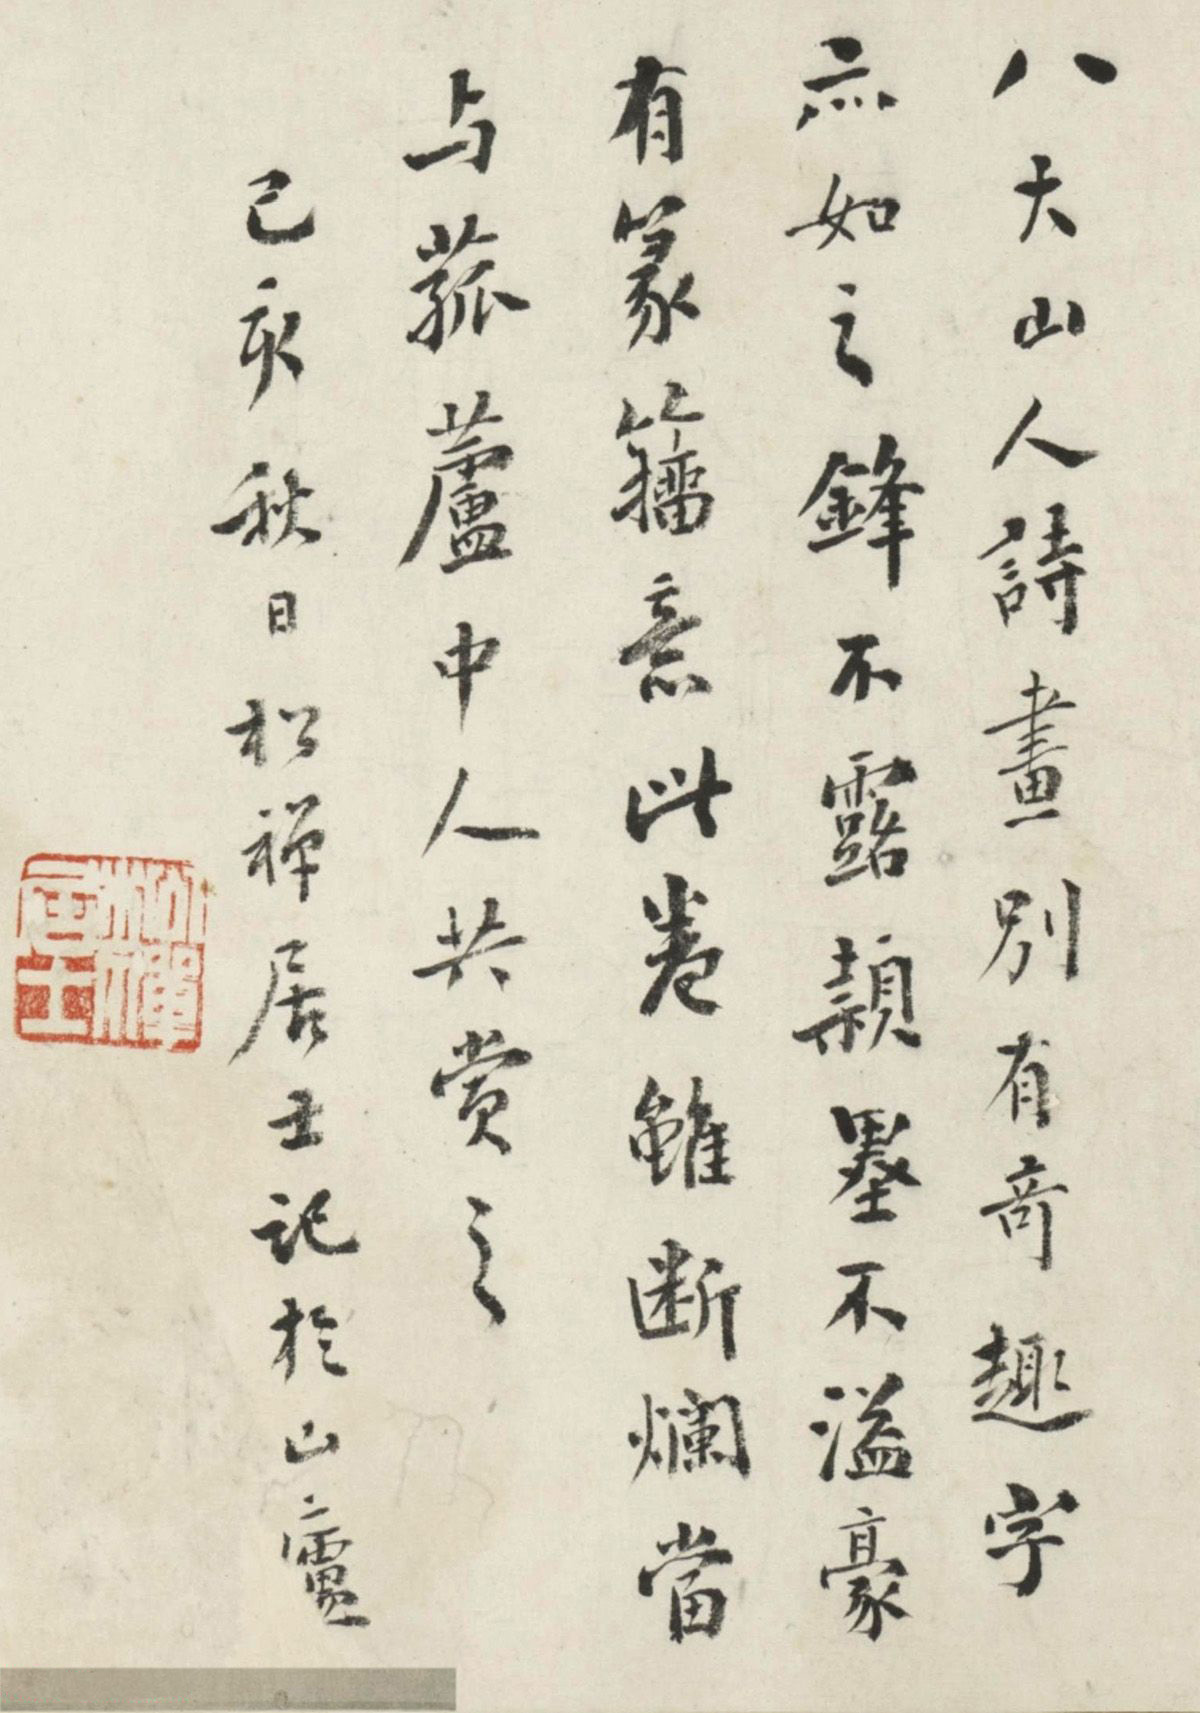 八大山人詩畫別有奇趣字
亦如之鋒不露穎墨不溢豪
有篆籀意此卷雖断爛當
与菰蘆中人共賞之
己亥秋日松禅居士記於山廬
松禪居士